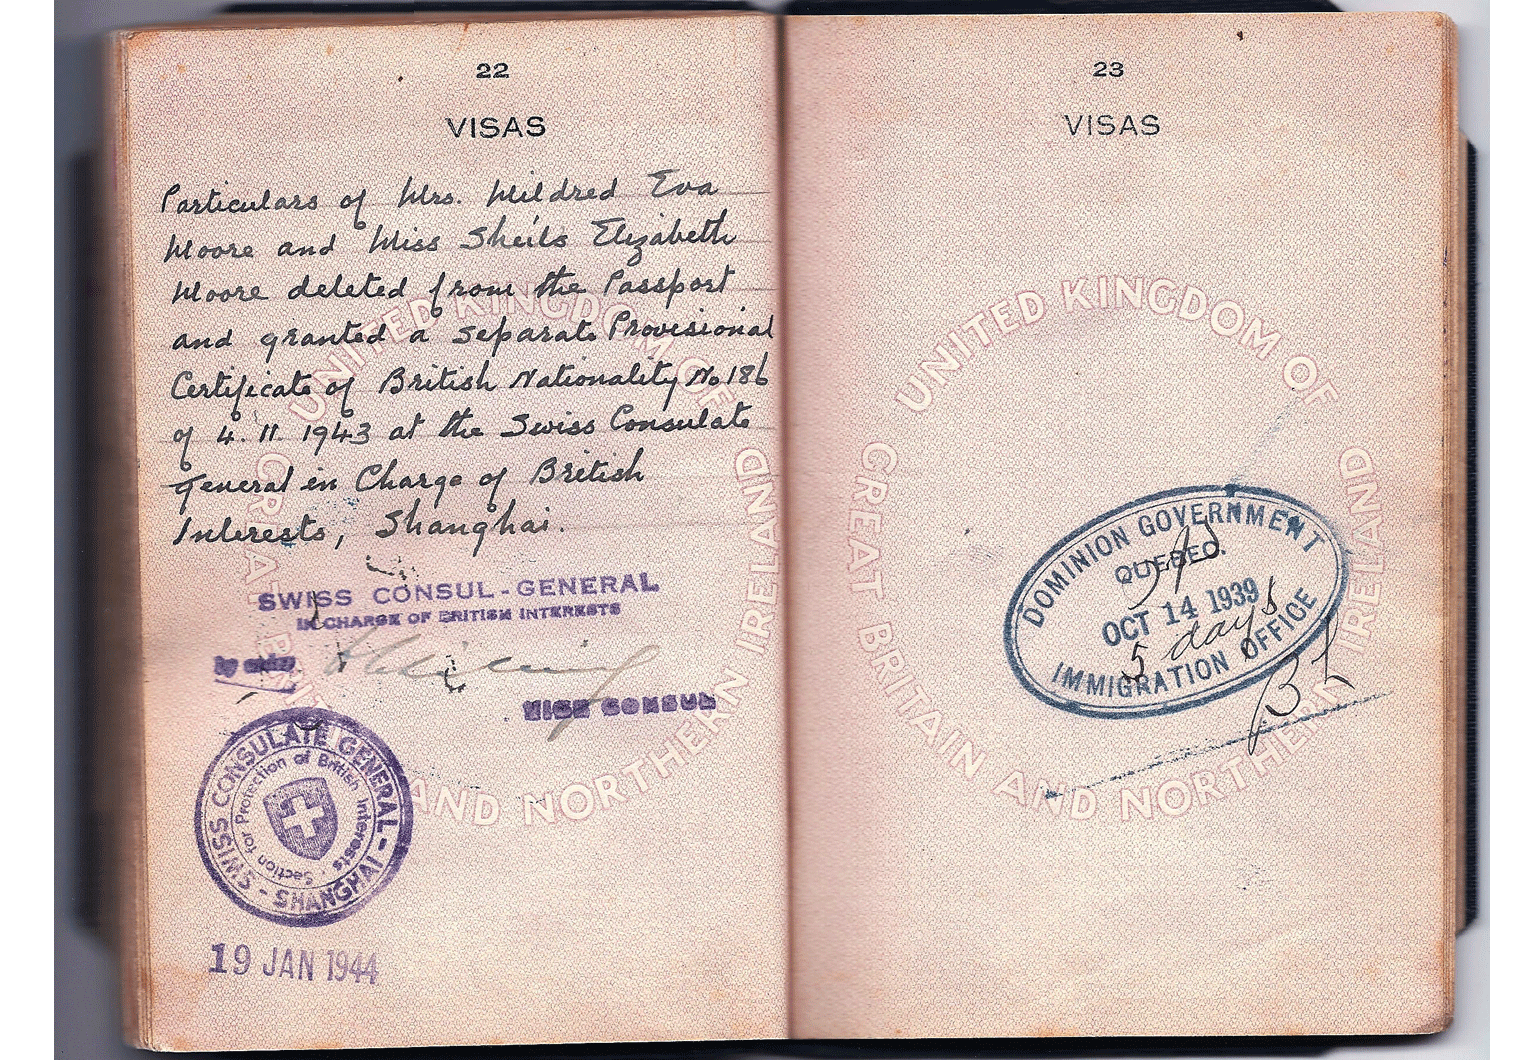 22
VISAS
Particulars of Mrs. Mildred Eva
Moore and Miss Sheila Elizabeth
Moore deleted from the Passport
and granted a separate Provisional
Certificate of British Nationality No 186
of 4. 11. 1943 at the Swiss Consulate
General in Charge of British
Interests, Shanghai.
SWISS CONSUL-GENERAL
IN CHARGE OF BRITISH INTERESTS
by order
VICE CONSUL
SWISS CONSULATE GENERAL - SHANGHAI -
Section for Protection of British Interests.
19 JAN 1944
UNITED KINGDOM OF
GREAT BRITAIN AND NORTHERN IRELAND
23
VISAS
UNITED KINGDOM OF
GREAT BRITAIN AND NORTHERN IRELAND
DOMINION GOVERNMENT
QUEBEC.
OCT 14 1939
5 days
IMMIGRATION OFFICE